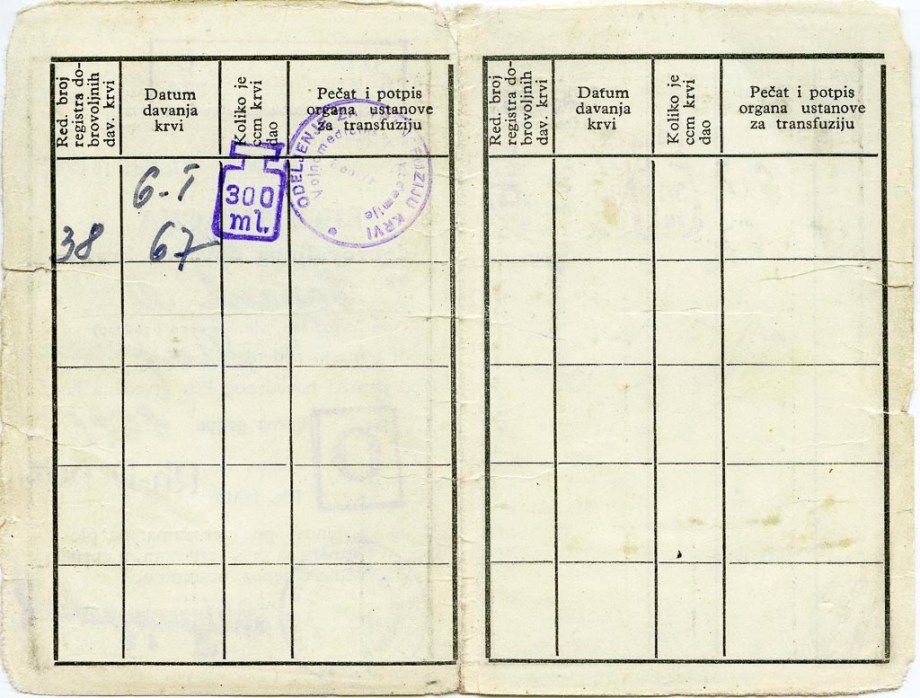 Red. broj
registra do-
brovoljnih
dav. krvi
Datum
davanja
krvi
Koliko je
ccm krvi
dao
Pečat i potpis
organa ustanove
za transfuziju
6-I
38
67
300
ml.
ODELJENJE ZA
KRVI
Red. broj
registra do-
brovoljnih
dav. krvi
Datum
davanja
krvi
Koliko je
ccm krvi
dao
Pečat i potpis
organa ustanove
za transfuziju
O